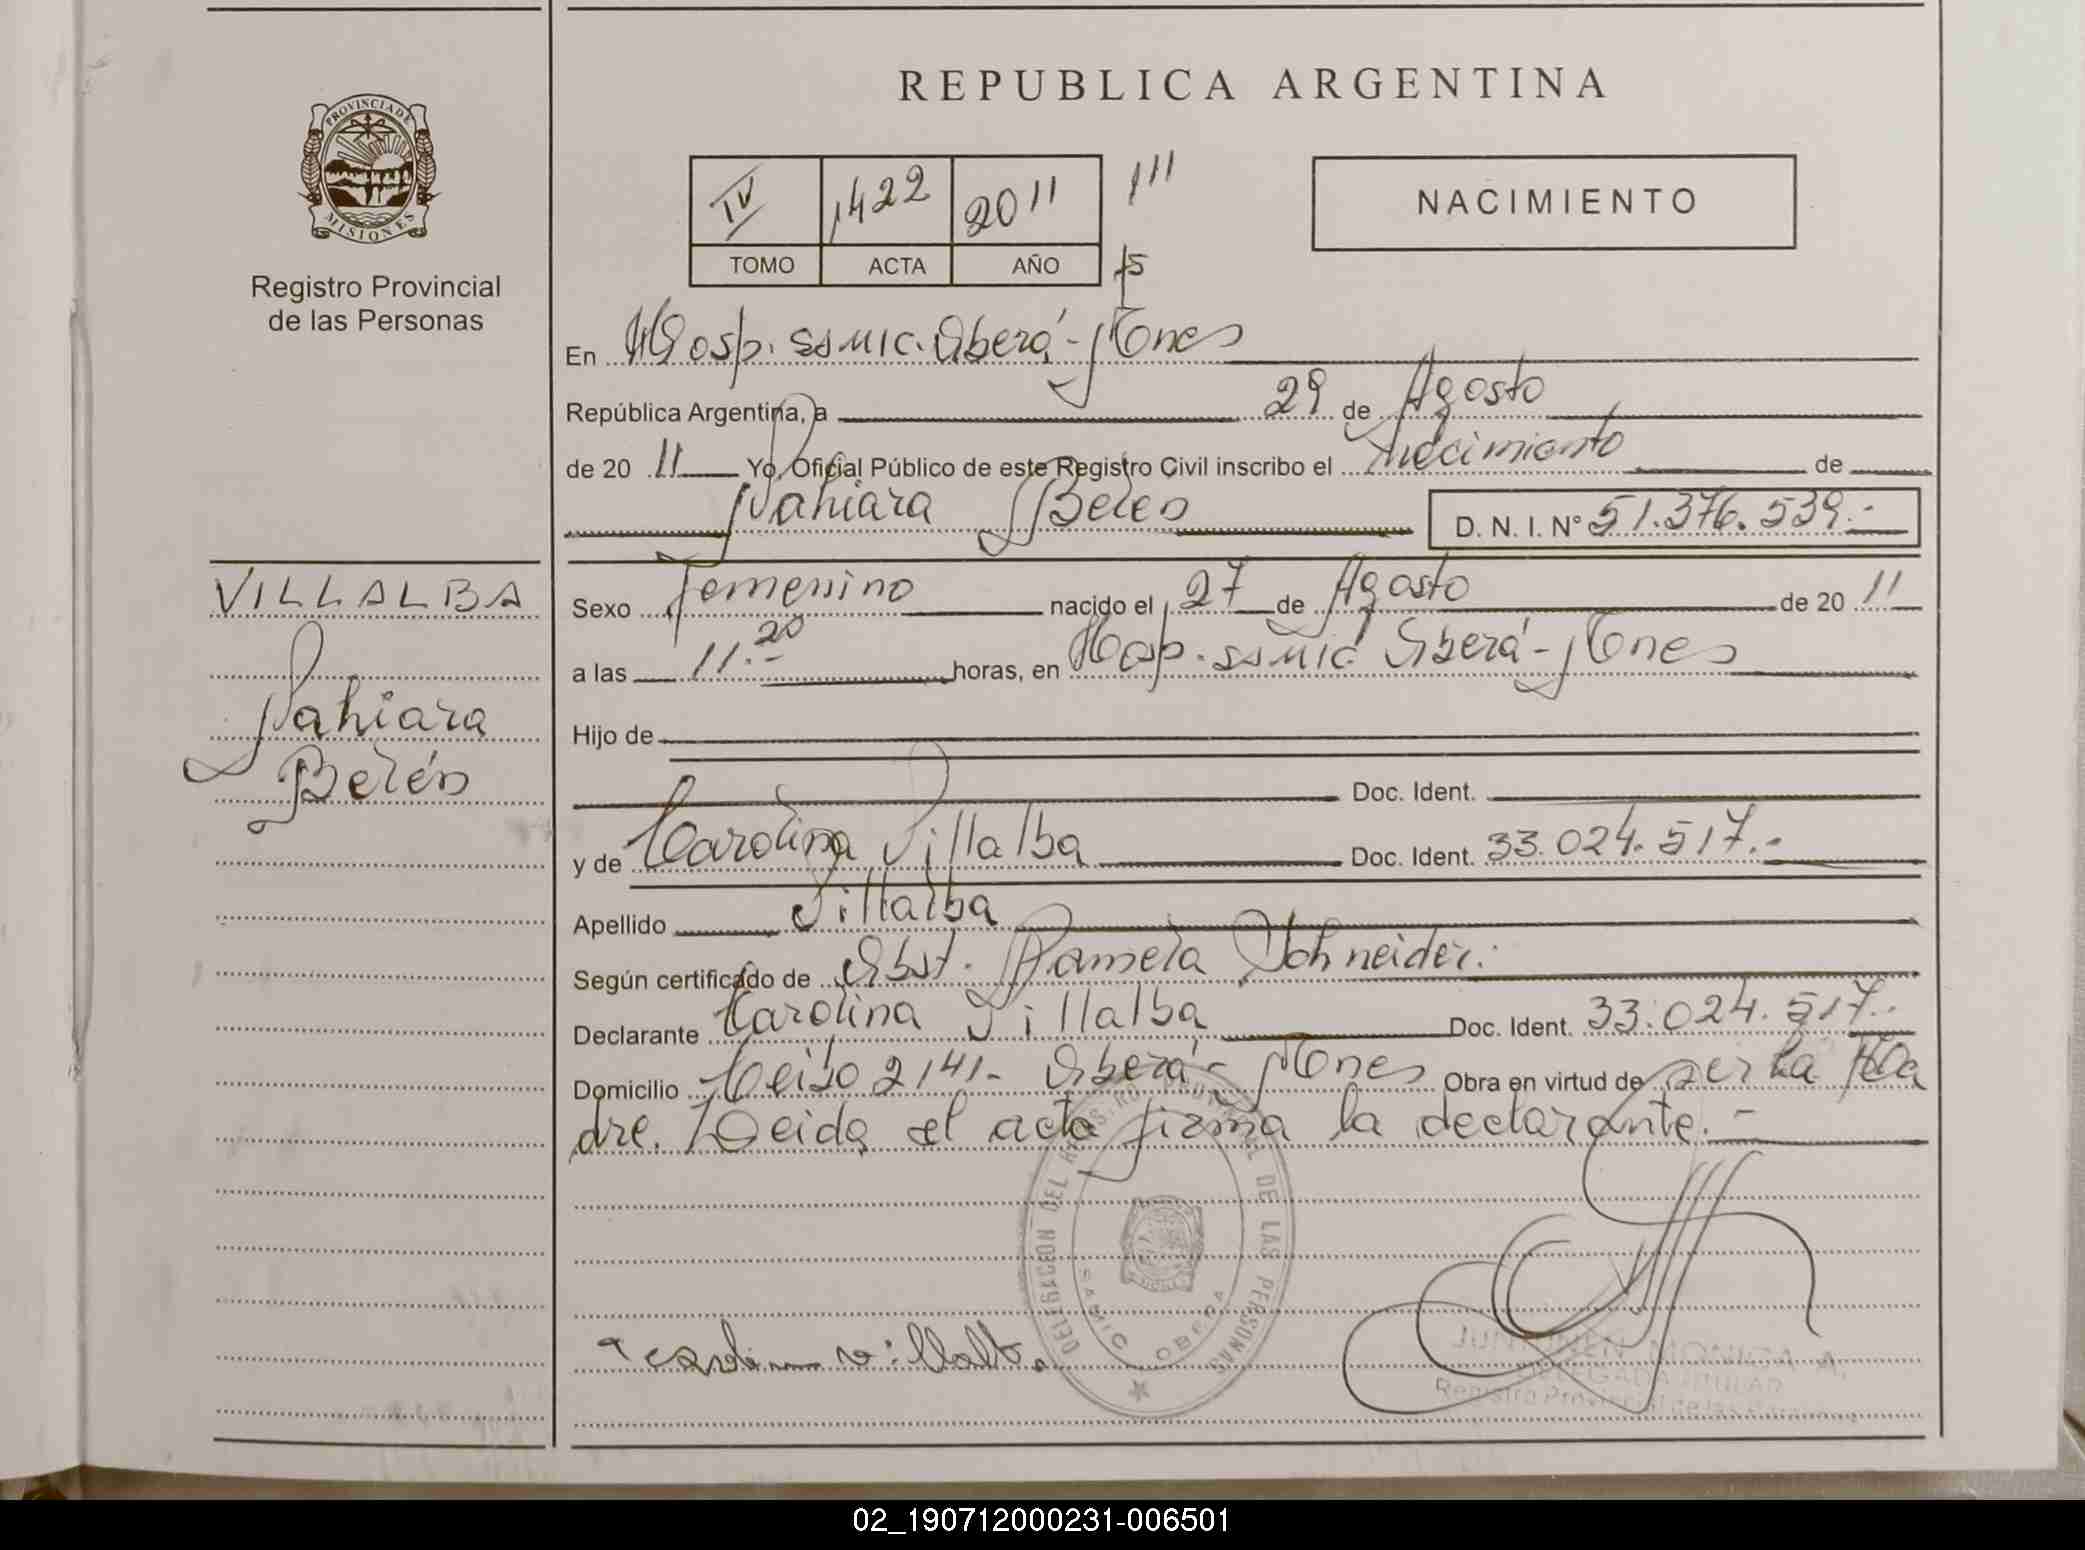 REPUBLICA ARGENTINA
PROVINCIA DE
MISIONES
Registro Provincial
de las Personas
IV 1422 2011 111
TOMO ACTA AÑO 75
NACIMIENTO
En Hosp. SAMIC. Oberá - Mnes
República Argentina, a 29 de Agosto
de 20 11 Yo, Oficial Público de este Registro Civil inscribo el Nacimiento de
Yahiara Belén D. N. I. N° 51.376.539.-
VILLALBA
Yahiara
Belén
Sexo Femenino nacido el 27 de Agosto de 20 11
a las 11.20 horas, en Hosp. SAMIC Oberá - Mnes
Hijo de
Doc. Ident.
y de Carolina Villalba Doc. Ident. 33.024.517.-
Apellido Villalba
Según certificado de Obst. Pamela Schneider.
Declarante Carolina Villalba Doc. Ident. 33.024.517.-
Domicilio Ceibo 2141- Oberá - Mnes Obra en virtud de ser la Ma
dre. Leída el acta firma la declarante.-
DELEGACION DEL REGISTRO PROVINCIAL DE LAS PERSONAS
SAMIC OBERA
MONICA A.
DELEGADA TITULAR
Registro Provincial de las Personas
02_190712000231-006501